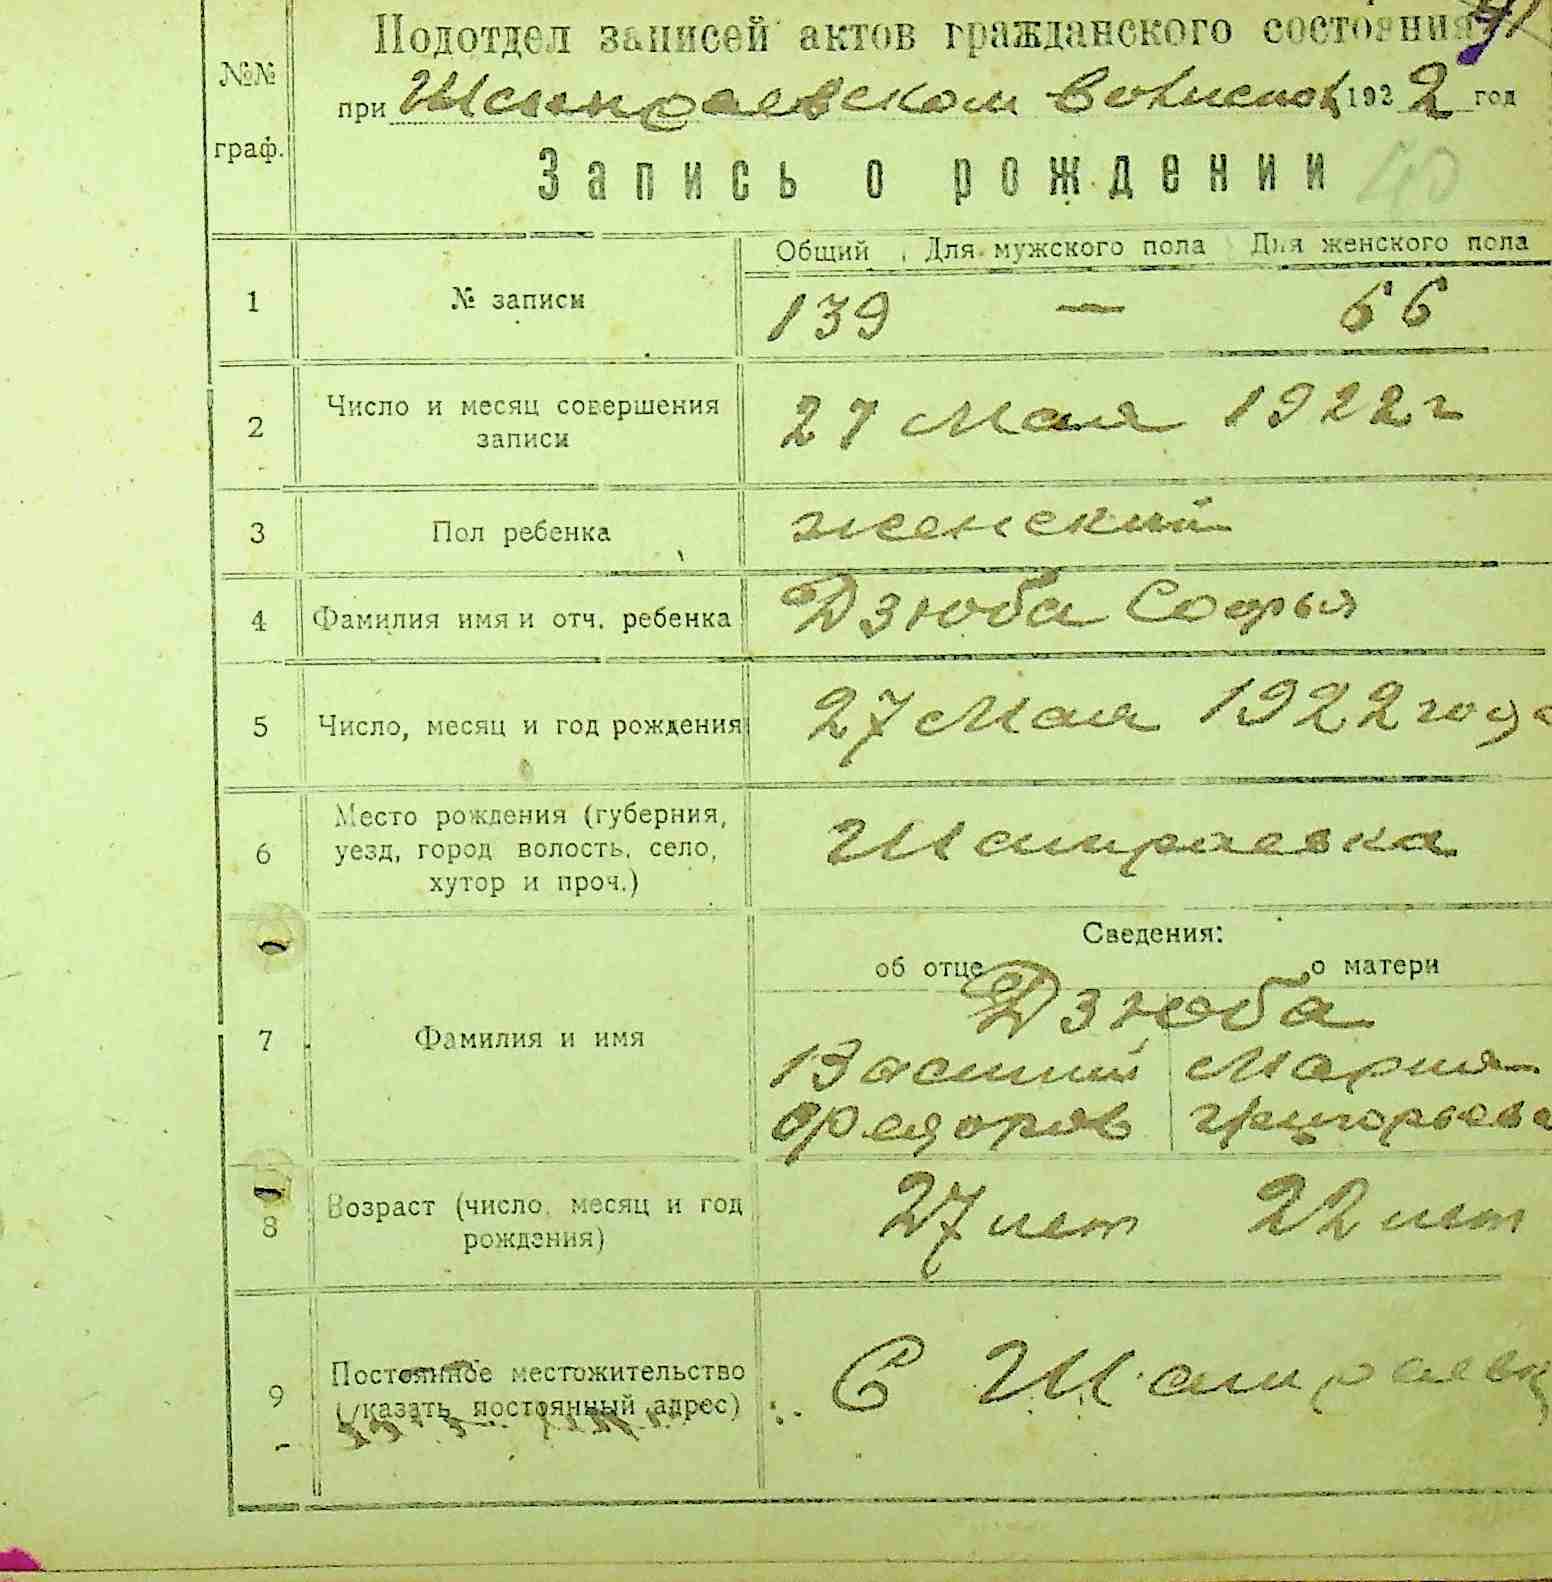 Подотдел записей актов гражданского состояния
№№ граф.
при Шамраевском волисполк 1922 год
Запись о рождении
Общий Для мужского пола Для женского пола
1 № записи 139 — 66
2 Число и месяц совершения записи 27 Мая 1922 г
3 Пол ребенка женский
4 Фамилия имя и отч. ребенка Дзюба Софья
5 Число, месяц и год рождения 27 Мая 1922 года
6 Место рождения (губерния,
уезд, город волость, село,
хутор и проч.)
Шамраевка
Сведения:
об отце о матери
Дзюба
7 Фамилия и имя
Василий Мария
Федоров Григорьева
8 Возраст (число, месяц и год рождения) 27 лет 22 лет
9 Постоянное местожительство
(указать постоянный адрес)
С Шамраевк